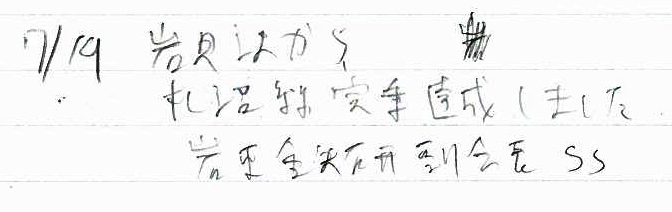 7/19 岩見沢から
札沼線完乗達成しました
鉄研副会長 SS